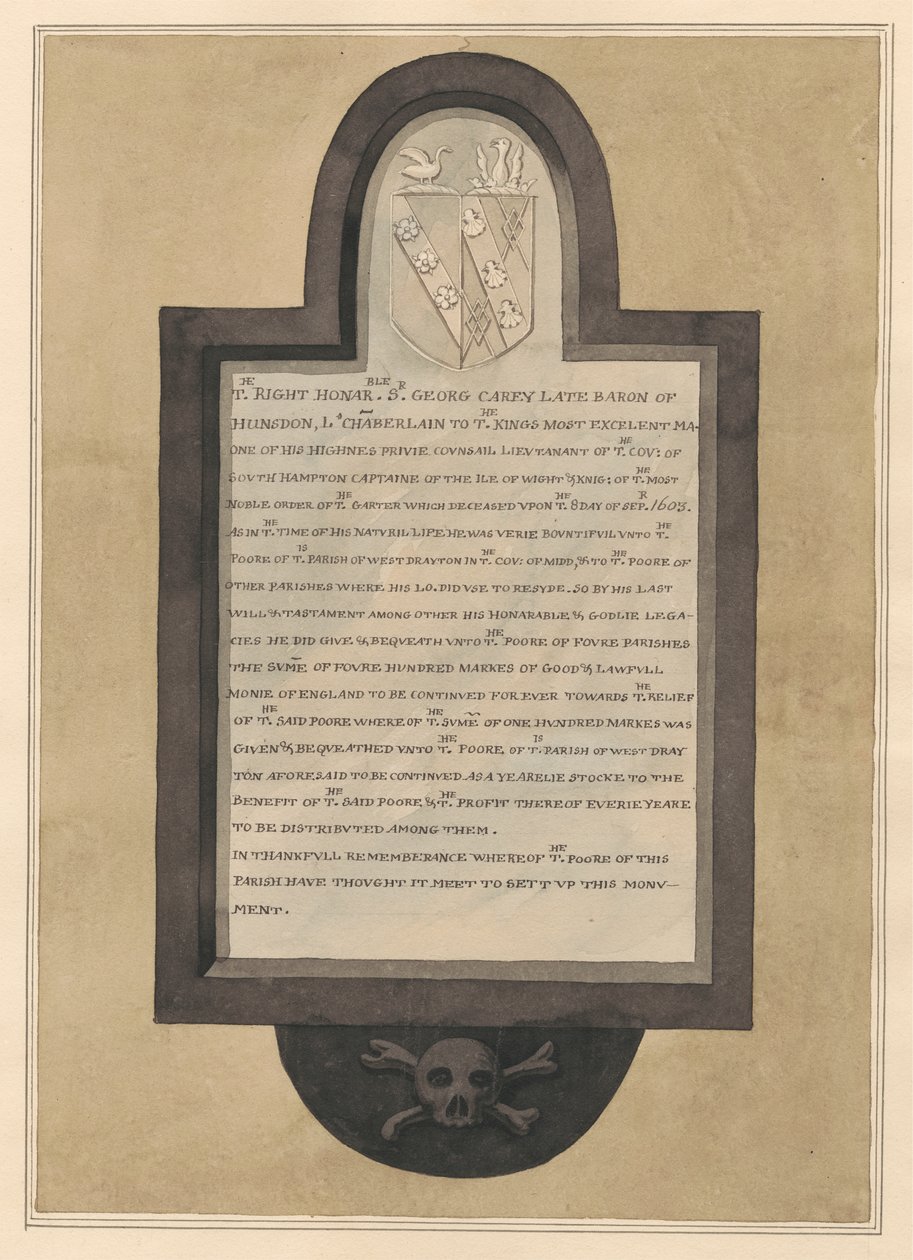 T.HE RIGHT HONAR.BLE SR. GEORG CAREY LATE BARON OF
HUNSDON, Ld CHĀBERLAIN TO T.HE KINGS MOST EXCELENT MA-
ONE OF HIS HIGHNES PRIVIE COVNSAIL LIEVTANANT OF T.HE COV: OF
SOVTH HAMPTON CAPTAINE OF THE ILE OF WIGHT & KNIG: OF T.HE MOST
NOBLE ORDER OF T.HE GARTER WHICH DECEASED VPON T.HE 8 DAY OF SEP.R 1603.
AS IN T.HE TIME OF HIS NATVRIL LIFE HE WAS VERIE BOVNTIFVIL VNTO T.HE
POORE OF T.IS PARISH OF WEST DRAYTON IN T.HE COV: OF MIDD, & TO T.HE POORE OF
OTHER PARISHES WHERE HIS LO. DID VSE TO RESYDE. SO BY HIS LAST
WILL & TASTAMENT AMONG OTHER HIS HONARABLE & GODLIE LEGA-
CIES HE DID GIVE & BEQVEATH VNTO T.HE POORE OF FOVRE PARISHES
THE SVM̄E OF FOVRE HUNDRED MARKES OF GOOD & LAWFVLL
MONIE OF ENGLAND TO BE CONTINVED FOR EVER TOWARDS T.HE RELIEF
OF T.HE SAID POORE WHERE OF T.HE SVM̃E OF ONE HVNDRED MARKES WAS
GIVEN & BEQVEATHED VNTO T.HE POORE OF T.IS PARISH OF WEST DRAY
TON AFORESAID TO BE CONTINVED AS A YEARELIE STOCKE TO THE
BENEFIT OF T.HE SAID POORE, & T.HE PROFIT THEREOF EVERIE YEARE
TO BE DISTRIBVTED AMONG THEM.
IN THANKFVLL REMEMBERANCE WHEREOF T.HE POORE OF THIS
PARISH HAVE THOVGHT IT MEET TO SETT VP THIS MONV-
MENT.